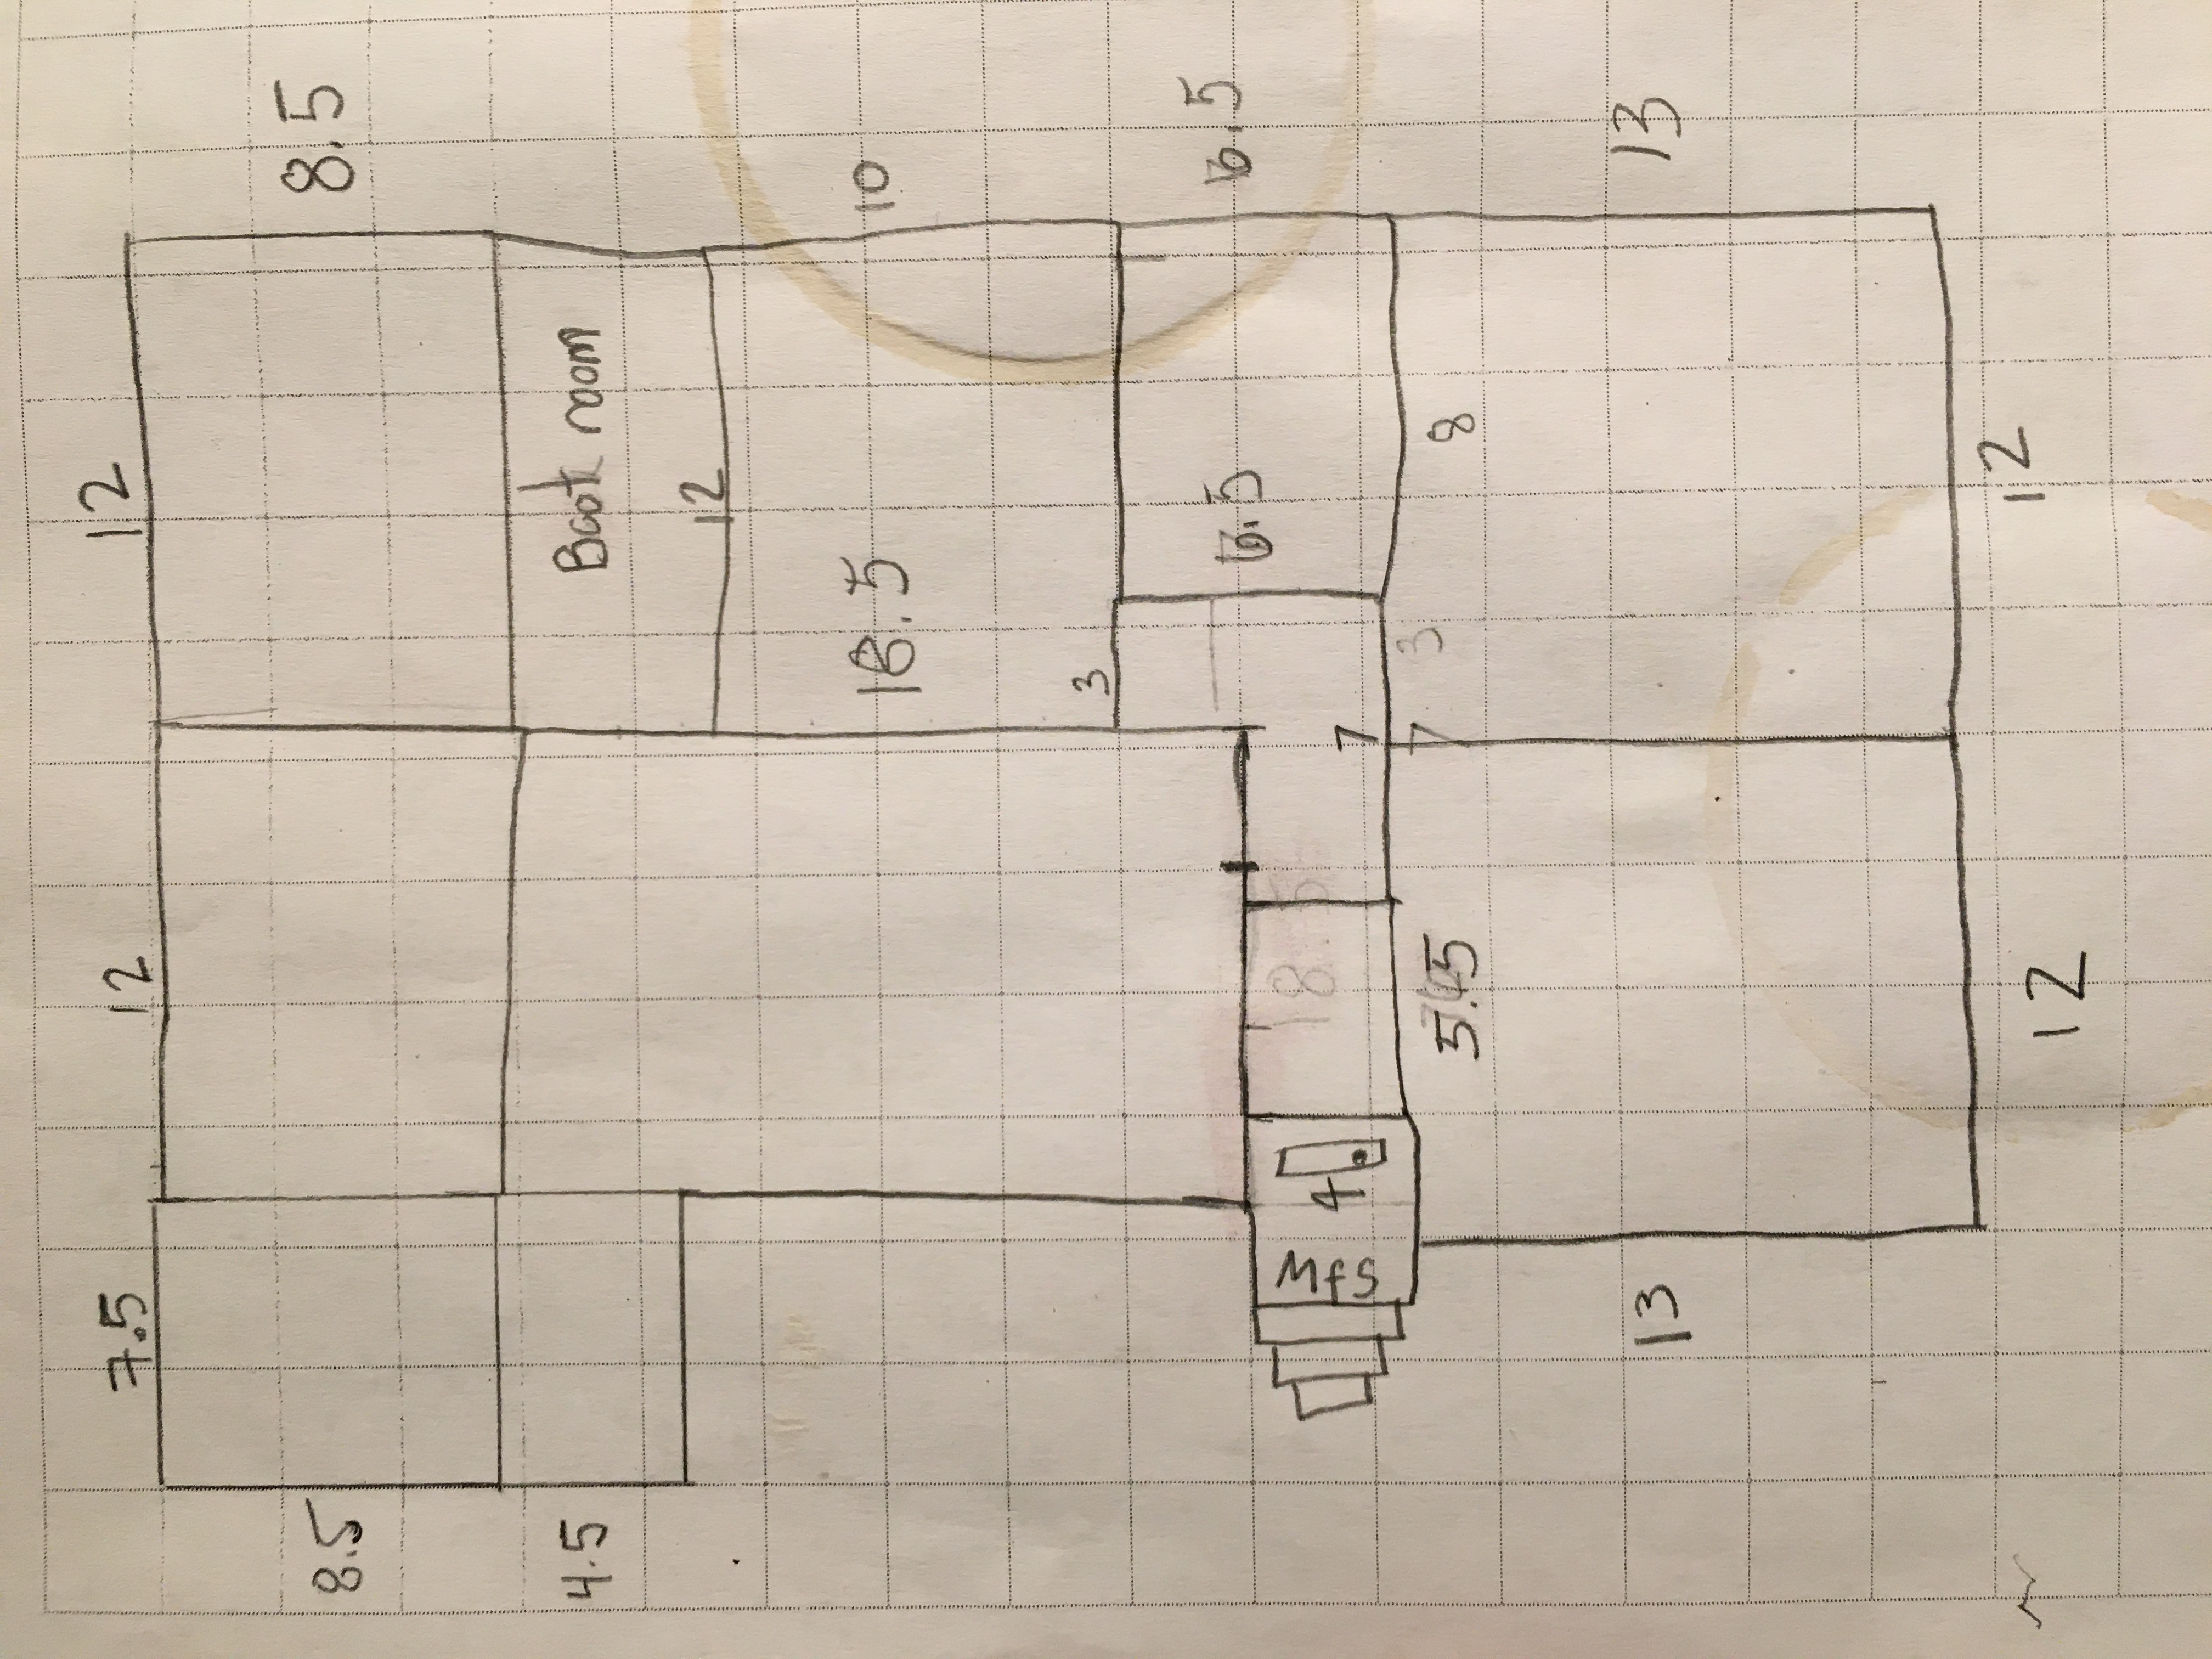 7.5 12 12
8.5 8.5
4.5 Boot room
12
18.5 10
3
6.5 6.5
18.5
4
7
7 3 8
13 13
12 12